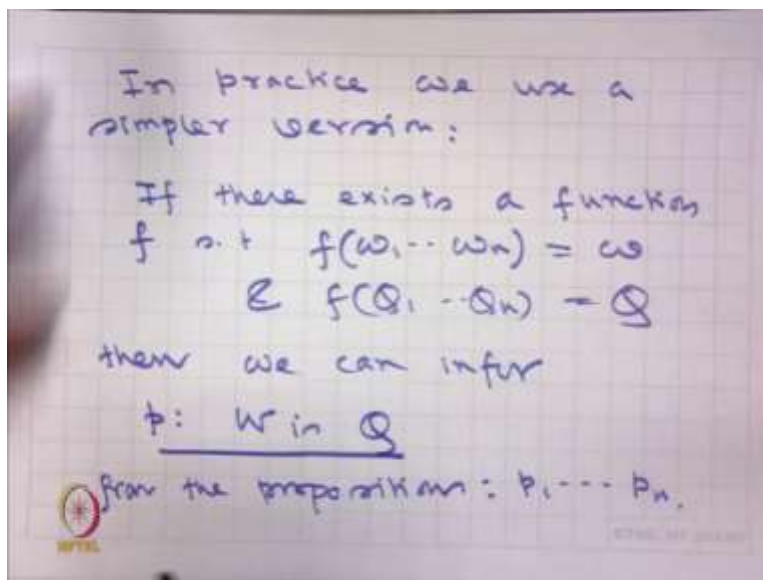 In practice we use a
simpler version:
If there exists a function
f s.t f(w₁ -- wₙ) = w
& f(Q₁ -- Qₙ) = Q
then we can infer
p: w in Q
from the propositions: p₁ --- pₙ.
NPTEL